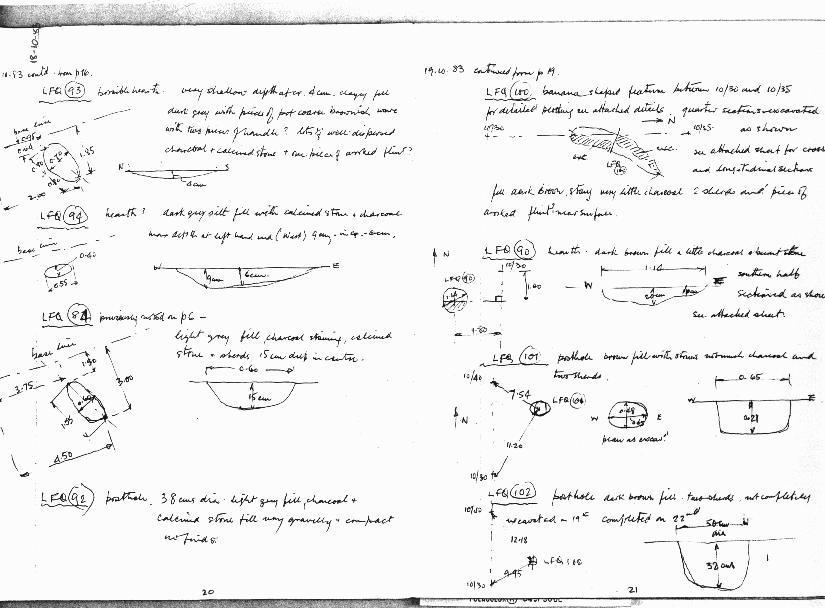 18-10-83
10.83 contd. from p16.
LFQ (93) possible hearth. very shallow depth at cr. 4cm. clayey fill
dark grey with pieces of pot coarse brownish ware
with two pieces of handle? lots of well dispersed
charcoal + calcined stone + one piece of worked flint?
base line
1.85
0.80
2.00
N S
4cm
LFQ (94) hearth? dark grey silt fill with calcined stone + charcoal
more depth at left hand end (West) 9cm
base line
0.40
0.55
W E
9cm 6cm
LFQ (84) previously noted on p6 -
light grey fill charcoal staining, calcined
stone + sherds 15cm deep in centre.
base line
1.40
3.75
3.00
4.50
0.60
15cm
LFQ (92) posthole. 38cms dia. light grey fill, charcoal +
calcined stone fill very gravelly + compact
no finds.
20
19.10.83 continued from p 19.
LFQ (100) banana shaped feature between 10/30 and 10/35
for detailed plotting see attached details. quarter sections excavated
as shown
N
10/30 10/35
exc. exc.
LFQ (100)
see attached sheet for cross
and longitudinal sections
fill dark brown, stoney very little charcoal 2 sherds and piece of
worked flint near surface.
LFQ (90) hearth. dark brown fill + little charcoal + burnt stone
N
10/30
LFQ (90)
1.14
1.00
1.80
W E
1.14
20cm
southern half
sectioned as shown
see attached sheet.
LFQ (101) posthole brown fill with stones not much charcoal and
two sherds.
10/40
7.54
LFQ (101)
N
11.20
10/30
W E
0.68
0.65
plan as excav?
W E
0.65
0.28
LFQ (102) posthole dark brown fill. two sherds. not completely
excavated - 19th completed on 22nd
10/40
12.18
LFQ 102
9.95
10/30
50cm
dia
32cms
21